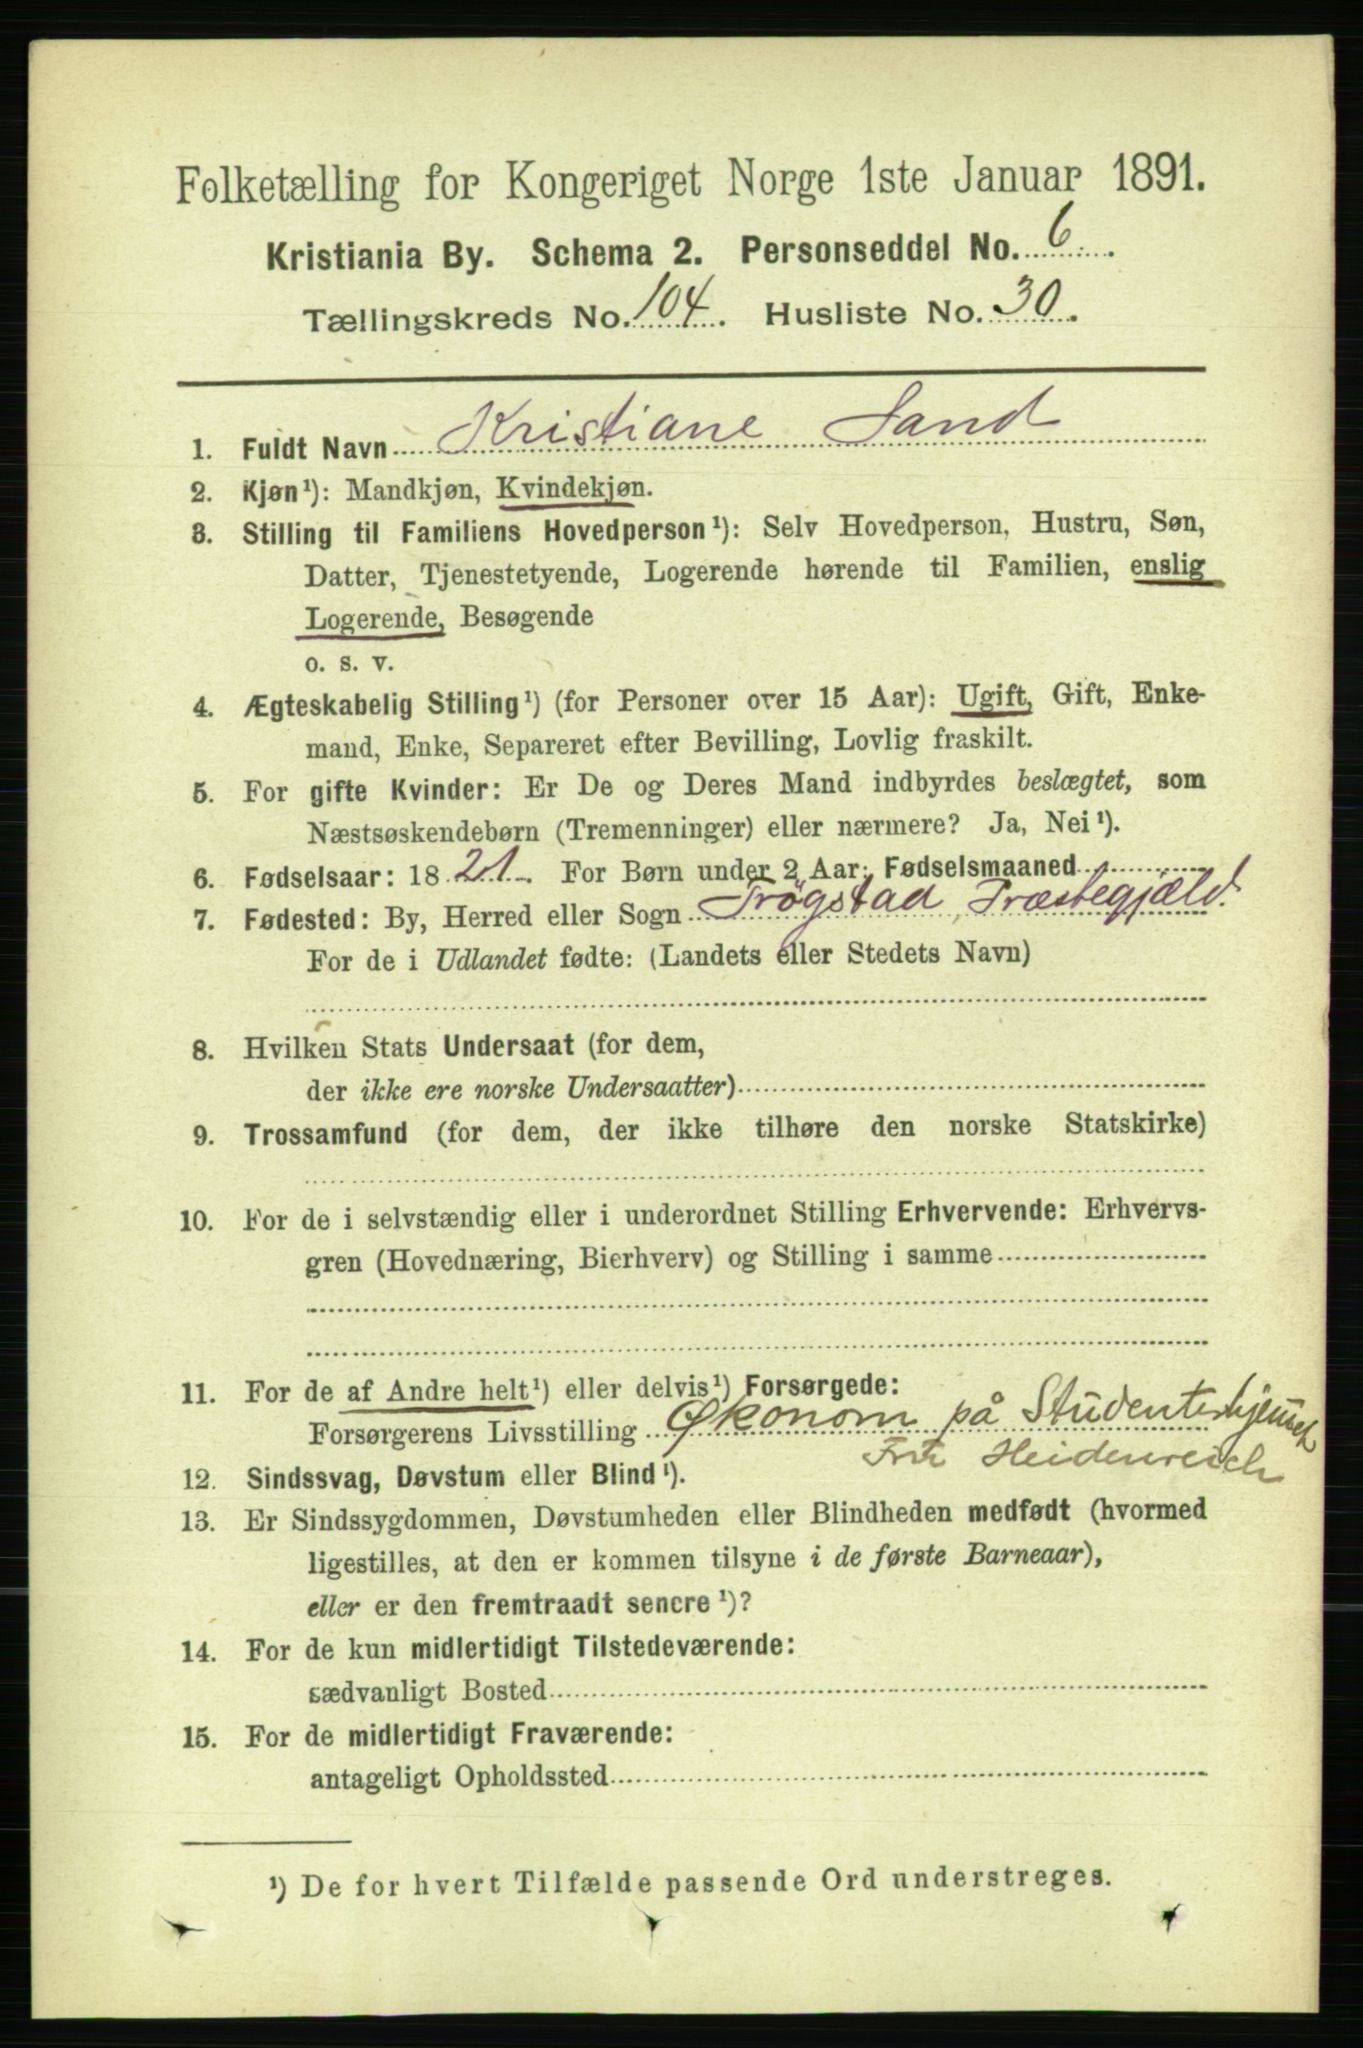 Folketælling for Kongeriget Norge 1ste Januar 1891.
Kristiania By. Schema 2. Personseddel No. 6.
Tællingskreds No. 104. Husliste No. 30.
1. Fuldt Navn Kristiane Sand
2. Kjøn¹): Mandkjøn, Kvindekjøn.
3. Stilling til Familiens Hovedperson¹): Selv Hovedperson, Hustru, Søn,
Datter, Tjenestetyende, Logerende hørende til Familien, enslig
Logerende, Besøgende
o. s. v.
4. Ægteskabelig Stilling¹) (for Personer over 15 Aar): Ugift, Gift, Enke-
mand, Enke, Separeret efter Bevilling, Lovlig fraskilt.
5. For gifte Kvinder: Er De og Deres Mand indbyrdes beslægtet, som
Næstsøskendebørn (Tremenninger) eller nærmere? Ja, Nei¹).
6. Fødselsaar: 1821. For Børn under 2 Aar: Fødselsmaaned
7. Fødested: By, Herred eller Sogn Trøgstad, Præstegjæld.
For de i Udlandet fødte: (Landets eller Stedets Navn)
8. Hvilken Stats Undersaat (for dem,
der ikke ere norske Undersaatter)
9. Trossamfund (for dem, der ikke tilhøre den norske Statskirke)
10. For de i selvstændig eller i underordnet Stilling Erhvervende: Erhvervs-
gren (Hovednæring, Bierhverv) og Stilling i samme
11. For de af Andre helt¹) eller delvis¹) Forsørgede:
Forsørgerens Livsstilling Økonom på Studenterhjemmet
Heidenreich
12. Sindssvag, Døvstum eller Blind¹).
13. Er Sindssygdommen, Døvstumheden eller Blindheden medfødt (hvormed
ligestilles, at den er kommen tilsyne i de første Barneaar),
eller er den fremtraadt senere¹)?
14. For de kun midlertidigt Tilstedeværende:
sædvanligt Bosted
15. For de midlertidigt Fraværende:
antageligt Opholdssted
¹) De for hvert Tilfælde passende Ord understreges.